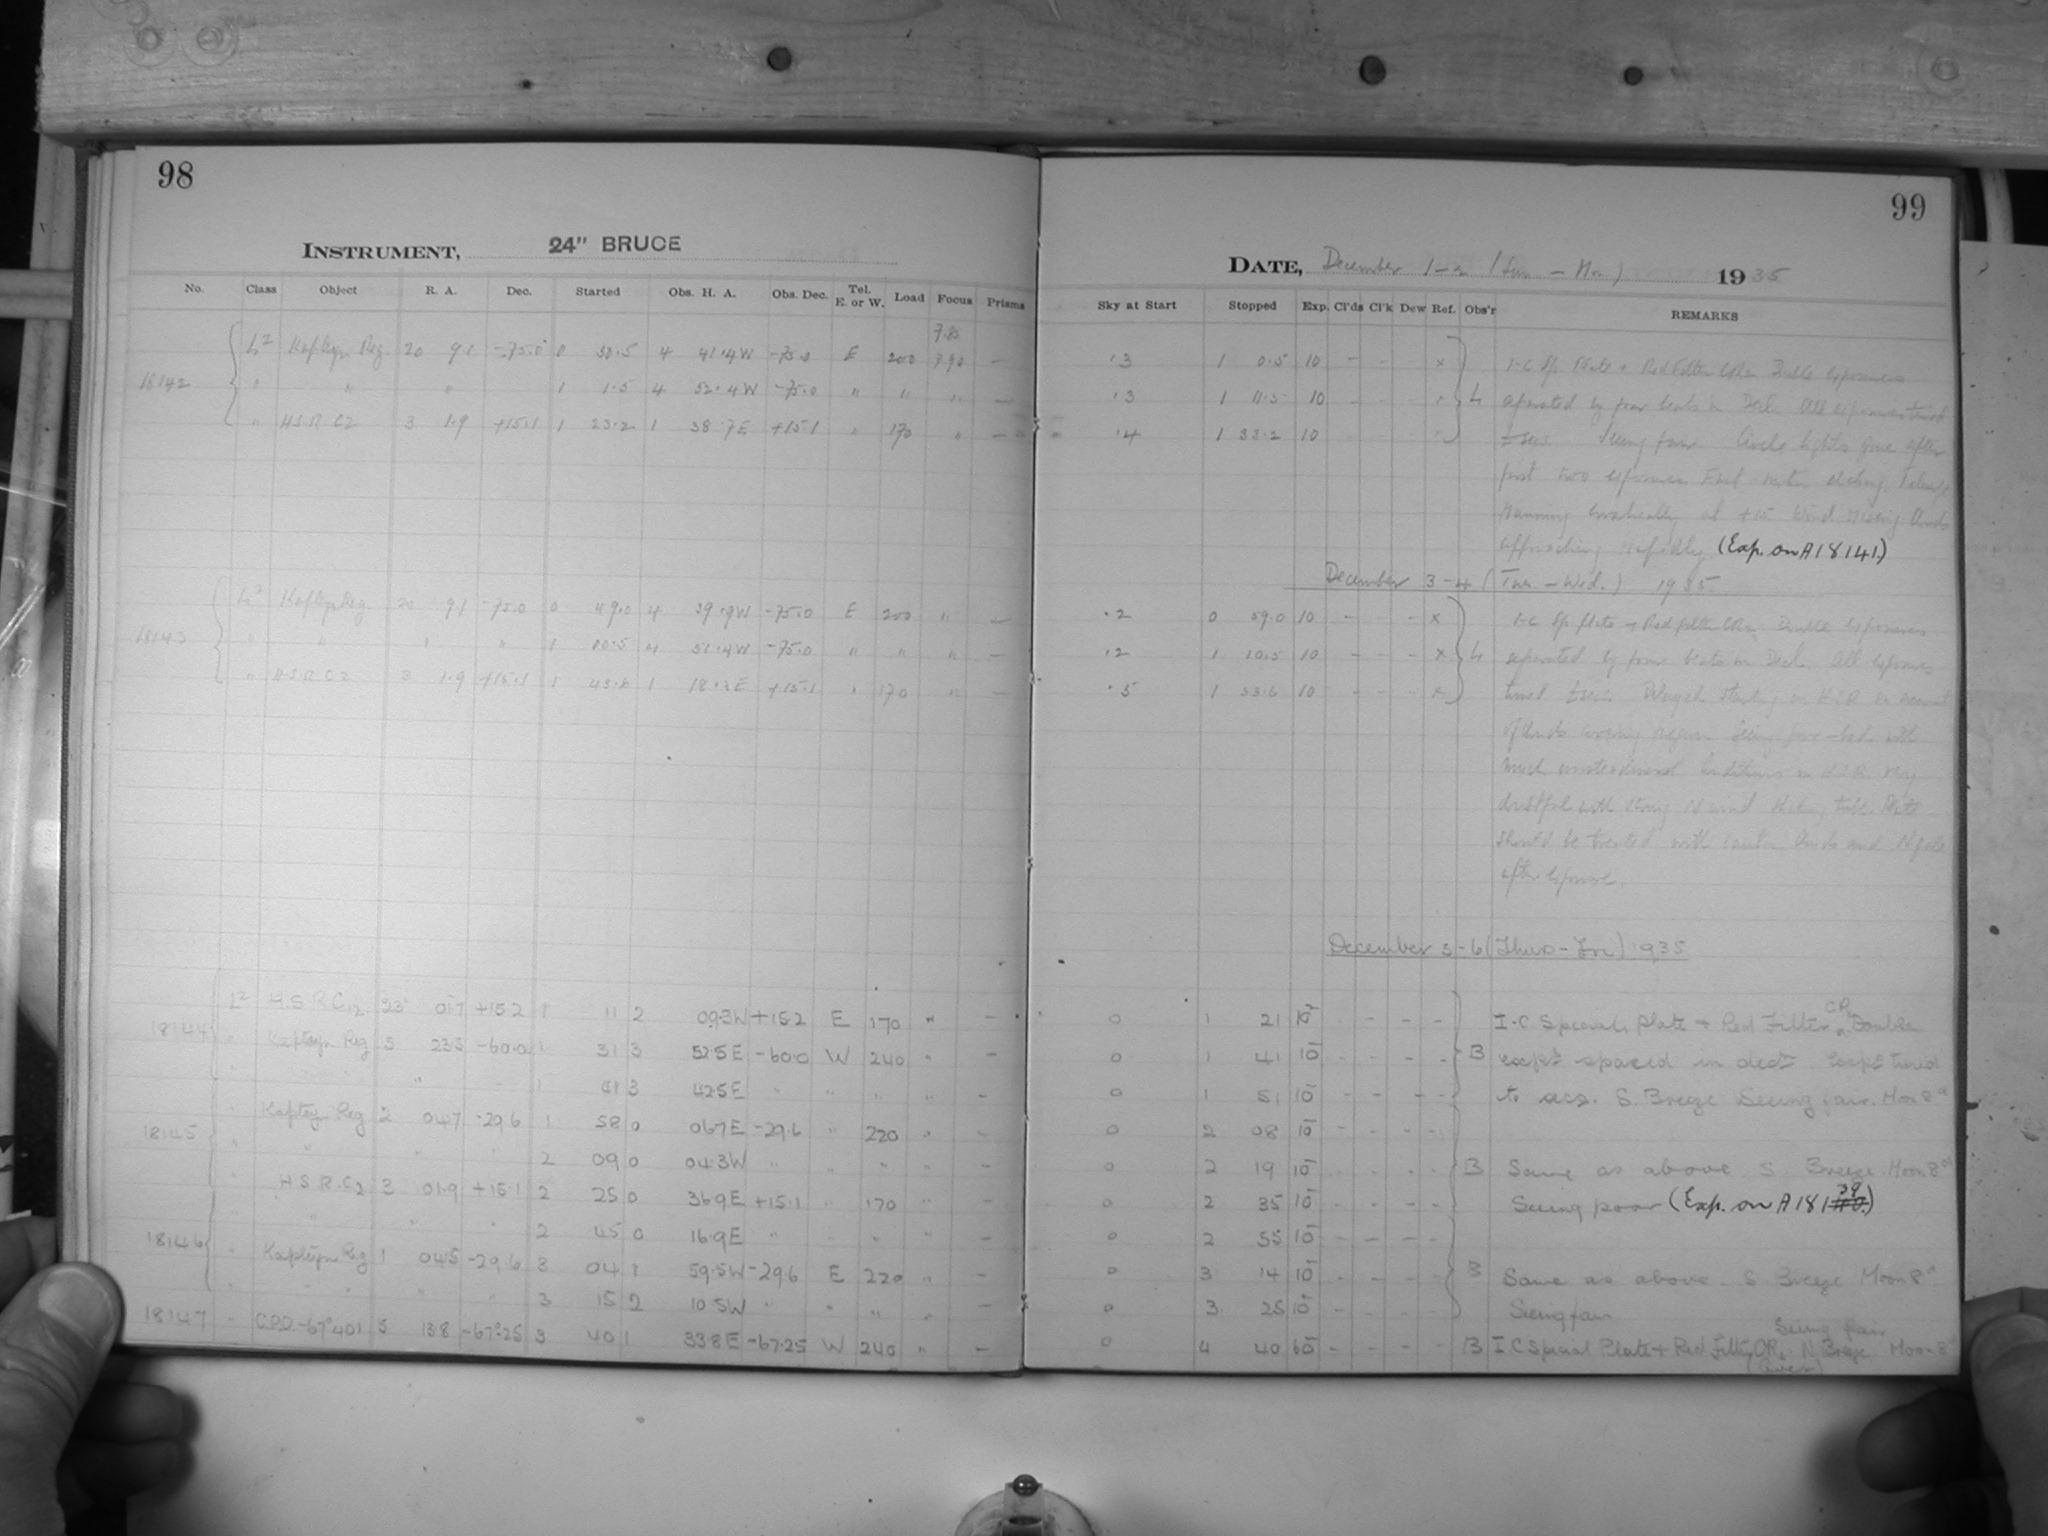 98
INSTRUMENT, 24" BRUCE
No. Class Object R. A. Dec. Started Obs. H. A. Obs. Dec. Tel. E. or W. Load Focus Prisms
7.85
L2 Kapteyn Reg. 20 9.1 -75.0 0 50.5 4 41.4W -75.0 E 200 7.90 —
18142 " " " 1 1.5 4 52.4W -75.0 " " " —
" H.S.R.C2 3 1.9 +15.1 1 23.2 1 38.7E +15.1 " 170 " —
L2 Kapteyn Reg. 20 9.1 -75.0 0 49.0 4 39.9W -75.0 E 200 " —
18143 " " " " 1 00.5 4 51.4W -75.0 " " " —
" H.S.R.C2 3 1.9 +15.1 1 43.6 1 18.3E +15.1 " 170 " —
L2 H.S.R.C12 23 01.7 +15.2 1 11 2 09.3W +15.2 E 170 " —
18144 " Kapteyn Reg 5 23.5 -60.0 1 31 3 52.5E -60.0 W 240 "
" " 1 41 3 42.5E " " " " —
" Kapteyn Reg 2 04.7 -29.6 1 58 0 06.7E -29.6 " 220 " —
18145 " " " " 2 09 0 04.3W " " " " —
" H.S.R.C2 3 01.9 +15.1 2 25 0 36.9E +15.1 " 170 " —
" " " " 2 45 0 16.9E " " " " —
18146 " Kapteyn Reg 1 04.5 -29.6 3 04 1 59.5W -29.6 E 220 " —
" " " " 3 15 2 10.5W " " " " —
18147 " C.P.D.-67°401 5 13.8 -67°.25 3 40 1 33.8E -67.25 W 240 " —
99
DATE, December 1-2 (Sun - Mon) 1935
Sky at Start Stopped Exp. Cl'ds Cl'k Dew Ref. Obs'r REMARKS
.3 1 0.5 10 - - x I-C Sp. Plate + Red Filter Double Exposures
.3 1 11.5 10 - - L separated by four beats in Decl. All exposures timed
.4 1 33.2 10 - - ± secs. Seeing fair. Circle lights gone after
first two exposures
running erratically at +15 Wind rising Clouds
approaching rapidly (Exp. on A18141.)
December 3-4 (Tues. - Wed.) 1935
.2 0 59.0 10 - - - x I-C Sp. plate + Red filter Double Exposures
.2 1 10.5 10 - - - x L separated by four beats in Decl. All exposures
.5 1 53.6 10 - - - x timed ± secs. Delayed starting on H.S.R. on account
of clouds covering region Seeing fair - bad with
much unsteadiness Conditions on H.S.R. very
doubtful with strong wind shaking tube. Plate
should be treated with caution Clouds and N gale
after exposure.
December 5-6 (Thurs - Fri) 1935
CR
0 1 21 10 - - - - I-C Special Plate + Red Filter Double
0 1 41 10 - - - - B expts spaced in decln expts timed
0 1 51 10 - - - - to secs. S. Breeze Seeing fair. Moon 8d
0 2 08 10 - - - -
0 2 19 10 - - - - B Same as above S. Breeze Moon 8d
0 2 35 10 - - - - Seeing poor (Exp. on A18139)
0 2 55 10 - - - -
0 3 14 10 - - - - B Same as above. S Breeze Moon 8d
0 3 25 10 - - - - Seeing fair
Seeing fair
0 4 40 60 - - - - B I C Special Plate + Red Filter CR. N Breeze Moon 8d
(over)